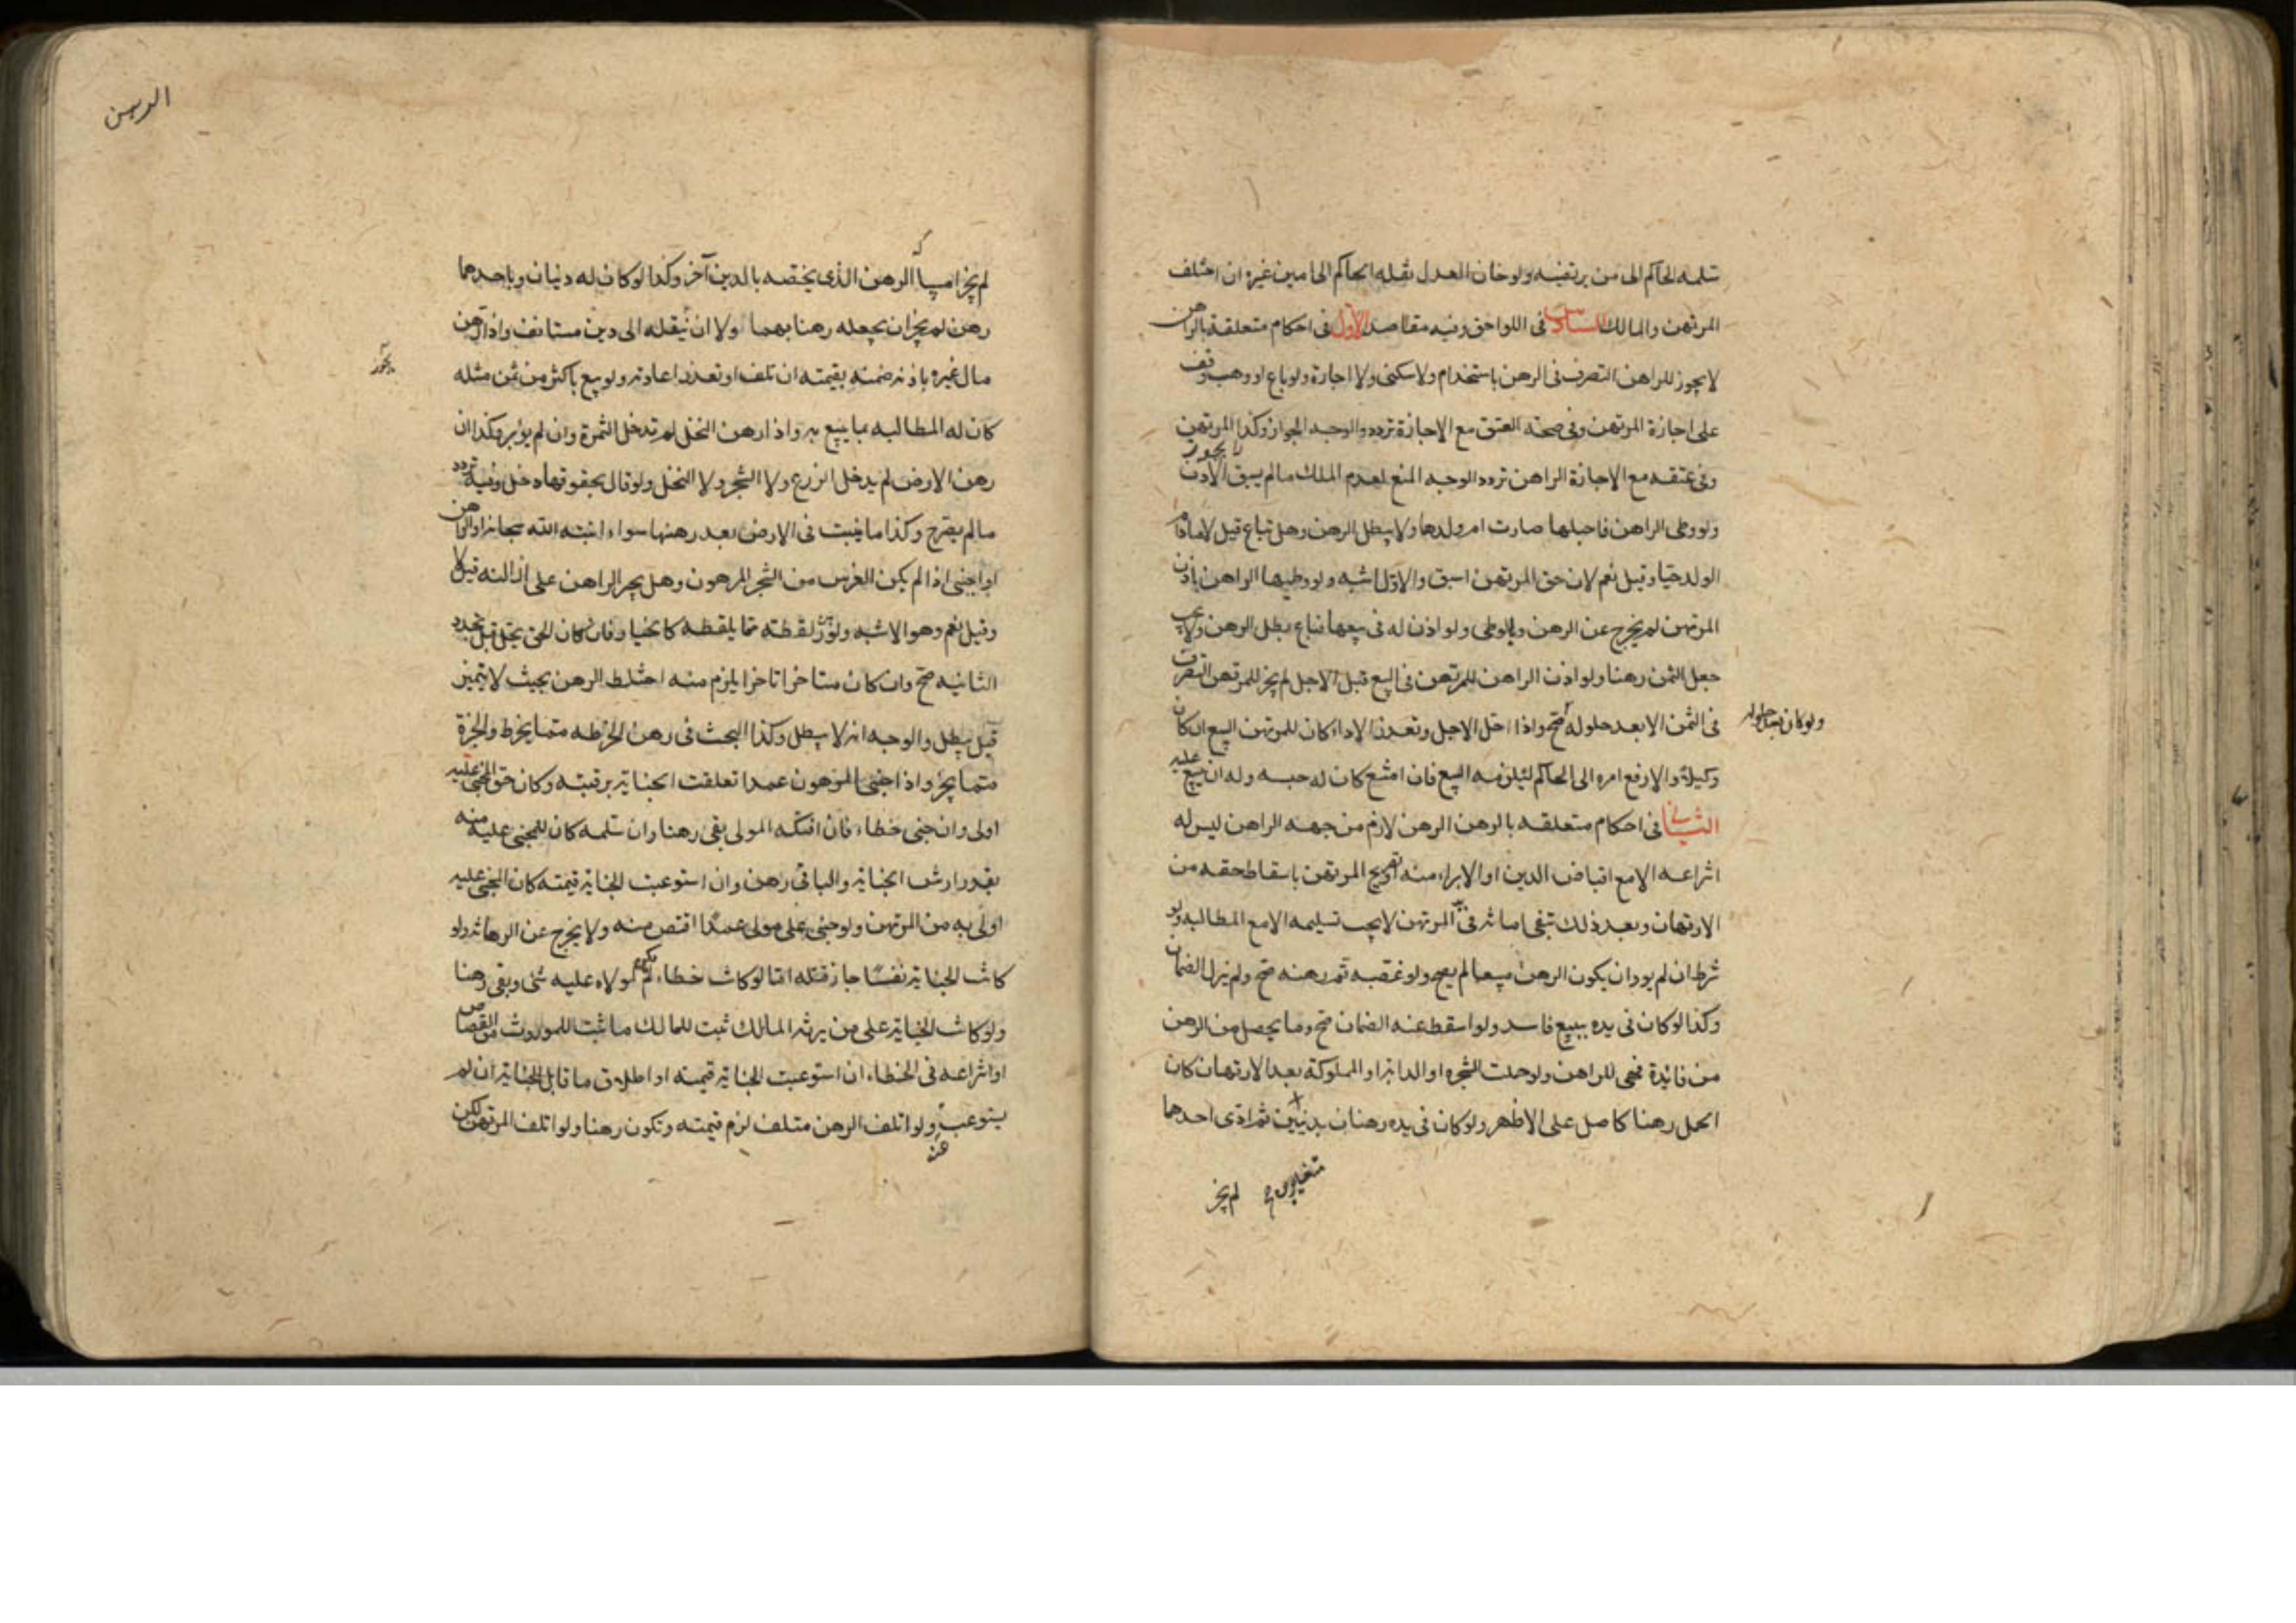 سلمه الحاكم الى من يرتضيه ولو خان العدل نقله الحاكم الى امين غيره ان اختلف
المرتهن والمالك السادس فى اللواحق وفيه مقاصد الاول فى احكام متعلقة بالراهن
لا يجوز للراهن التصرف فى الرهن باستخدام ولا سكنى ولا اجارة ولو باع او وهب وقف
على اجازة المرتهن وفى صحة العتق مع الاجازة تردد والوجه الجواز وكذا المرتهن
لا يجوز
وفى عتقه مع الاجازة الراهن تردد الوجه المنع لعدم الملك ما لم يسبق الاذن
ولو وطى الراهن فاحبلها صارت ام ولدها ولا يبطل الرهن وهل تباع قيل لا مادام
الولد حيا وقيل نعم لان حق المرتهن اسبق والاول اشبه ولو وطيها الراهن باذن
المرتهن لم يخرج عن الرهن بالوطى ولو اذن له فى بيعها فباع بطل الرهن ولا يجب
جعل الثمن رهنا ولو اذن الراهن للمرتهن فى البيع قبل الاجل لم يجز للمرتهن التصرف
فى الثمن الا بعد حلوله صح واذا حل الاجل وتعذر الاداء كان للمرتهن البيع ان كان
ولو كان بعد حلوله
وكيلا والا رفع امره الى الحاكم ليلزمه البيع فان امتنع كان له حبسه وله ان يبيع عليه
الثانى فى احكام متعلقه بالرهن الرهن لازم من جهه الراهن ليس له
انتزاعه الا مع اقباض الدين او الابراء منه او تصريح المرتهن باسقاط حقه من
الارتهان وبعد ذلك تبقى امانه فى يد المرتهن لا يجب تسليمه الا مع المطالبه ولو
شرط ان لم يود ان يكون الرهن مبيعا لم يصح ولو غصبه ثم رهنه صح ولم يزل الضمان
وكذا لو كان فى يده ببيع فاسد ولو اسقط عنه الضمان صح وما يحصل من الرهن
من فايدة فهى للراهن ولو حملت الشجره او الدابة او المملوكة بعد الارتهان كان
الحمل رهنا كاصل على الاظهر ولو كان فى يده رهنان بدينين ثم ادى احدهما
متغايرين لم يجز
الرهن
لم يجز امساك الرهن الذى يخصه بالدين آخر وكذا لو كان له دينان وباحدهما
رهن لم يجز ان يجعله رهنا بهما ولا ان ينقله الى دين مستانف واذا رهن
مال غيره باذنه ضمنه بقيمته ان تلف او تعذر اعادته ولو بيع باكثر من ثمن مثله
كان له المطالبه بما بيع به واذا رهن النخل لم تدخل الثمرة وان لم يؤبر وكذا ان
رهن الارض لم يدخل الزرع ولا الشجر ولا النخل ولو قال بحقوقها دخل وفيه تردد
ما لم يصرح وكذا ما ينبت فى الارض بعد رهنها سواء انبته الله سبحانه او الراهن
او اجنبى اذا لم يكن الغرس من الشجر المرهون وهل يجبر الراهن على ازالته قيل لا
وقيل نعم وهو الاشبه ولو رهن لقطة مما يلقطه كالخيار فان كان الحق يحل قبل تجدد
الثانيه صح وان كان متاخرا تاخرا يلزم منه اختلاط الرهن بحيث لا يتميز
قيل يبطل والوجه انه لا يبطل وكذا البحث فى رهن الخرطه مما يخرط والجزة
مما يجز واذا جنى المرهون عمدا تعلقت الجناية برقبته وكان حق المجنى عليه
اولى وان جنى خطاء فان افتكه المولى بقى رهنا وان سلمه كان للمجنى عليه منه
بقدر ارش الجناية والباقى رهن وان استوعبت الجناية قيمته كان المجنى عليه
اولى به من المرتهن ولو جنى على مولى عمدا اقتص منه ولا يخرج عن الرهانه ولو
كانت الجناية نفسا جاز قتله اما لو كانت خطاء لم يكن لمولاه عليه شى وبقى رهنا
ولو كانت الجناية على من يرثه المالك ثبت للمالك ما ثبت للموروث من القصاص
او انتزاعه فى الخطاء ان استوعبت الجناية قيمته او اطلاق ما قابل الجناية ان لم
يستوعب ولو اتلف الرهن متلف لزم قيمته وتكون رهنا ولو اتلف المرتهن لكن